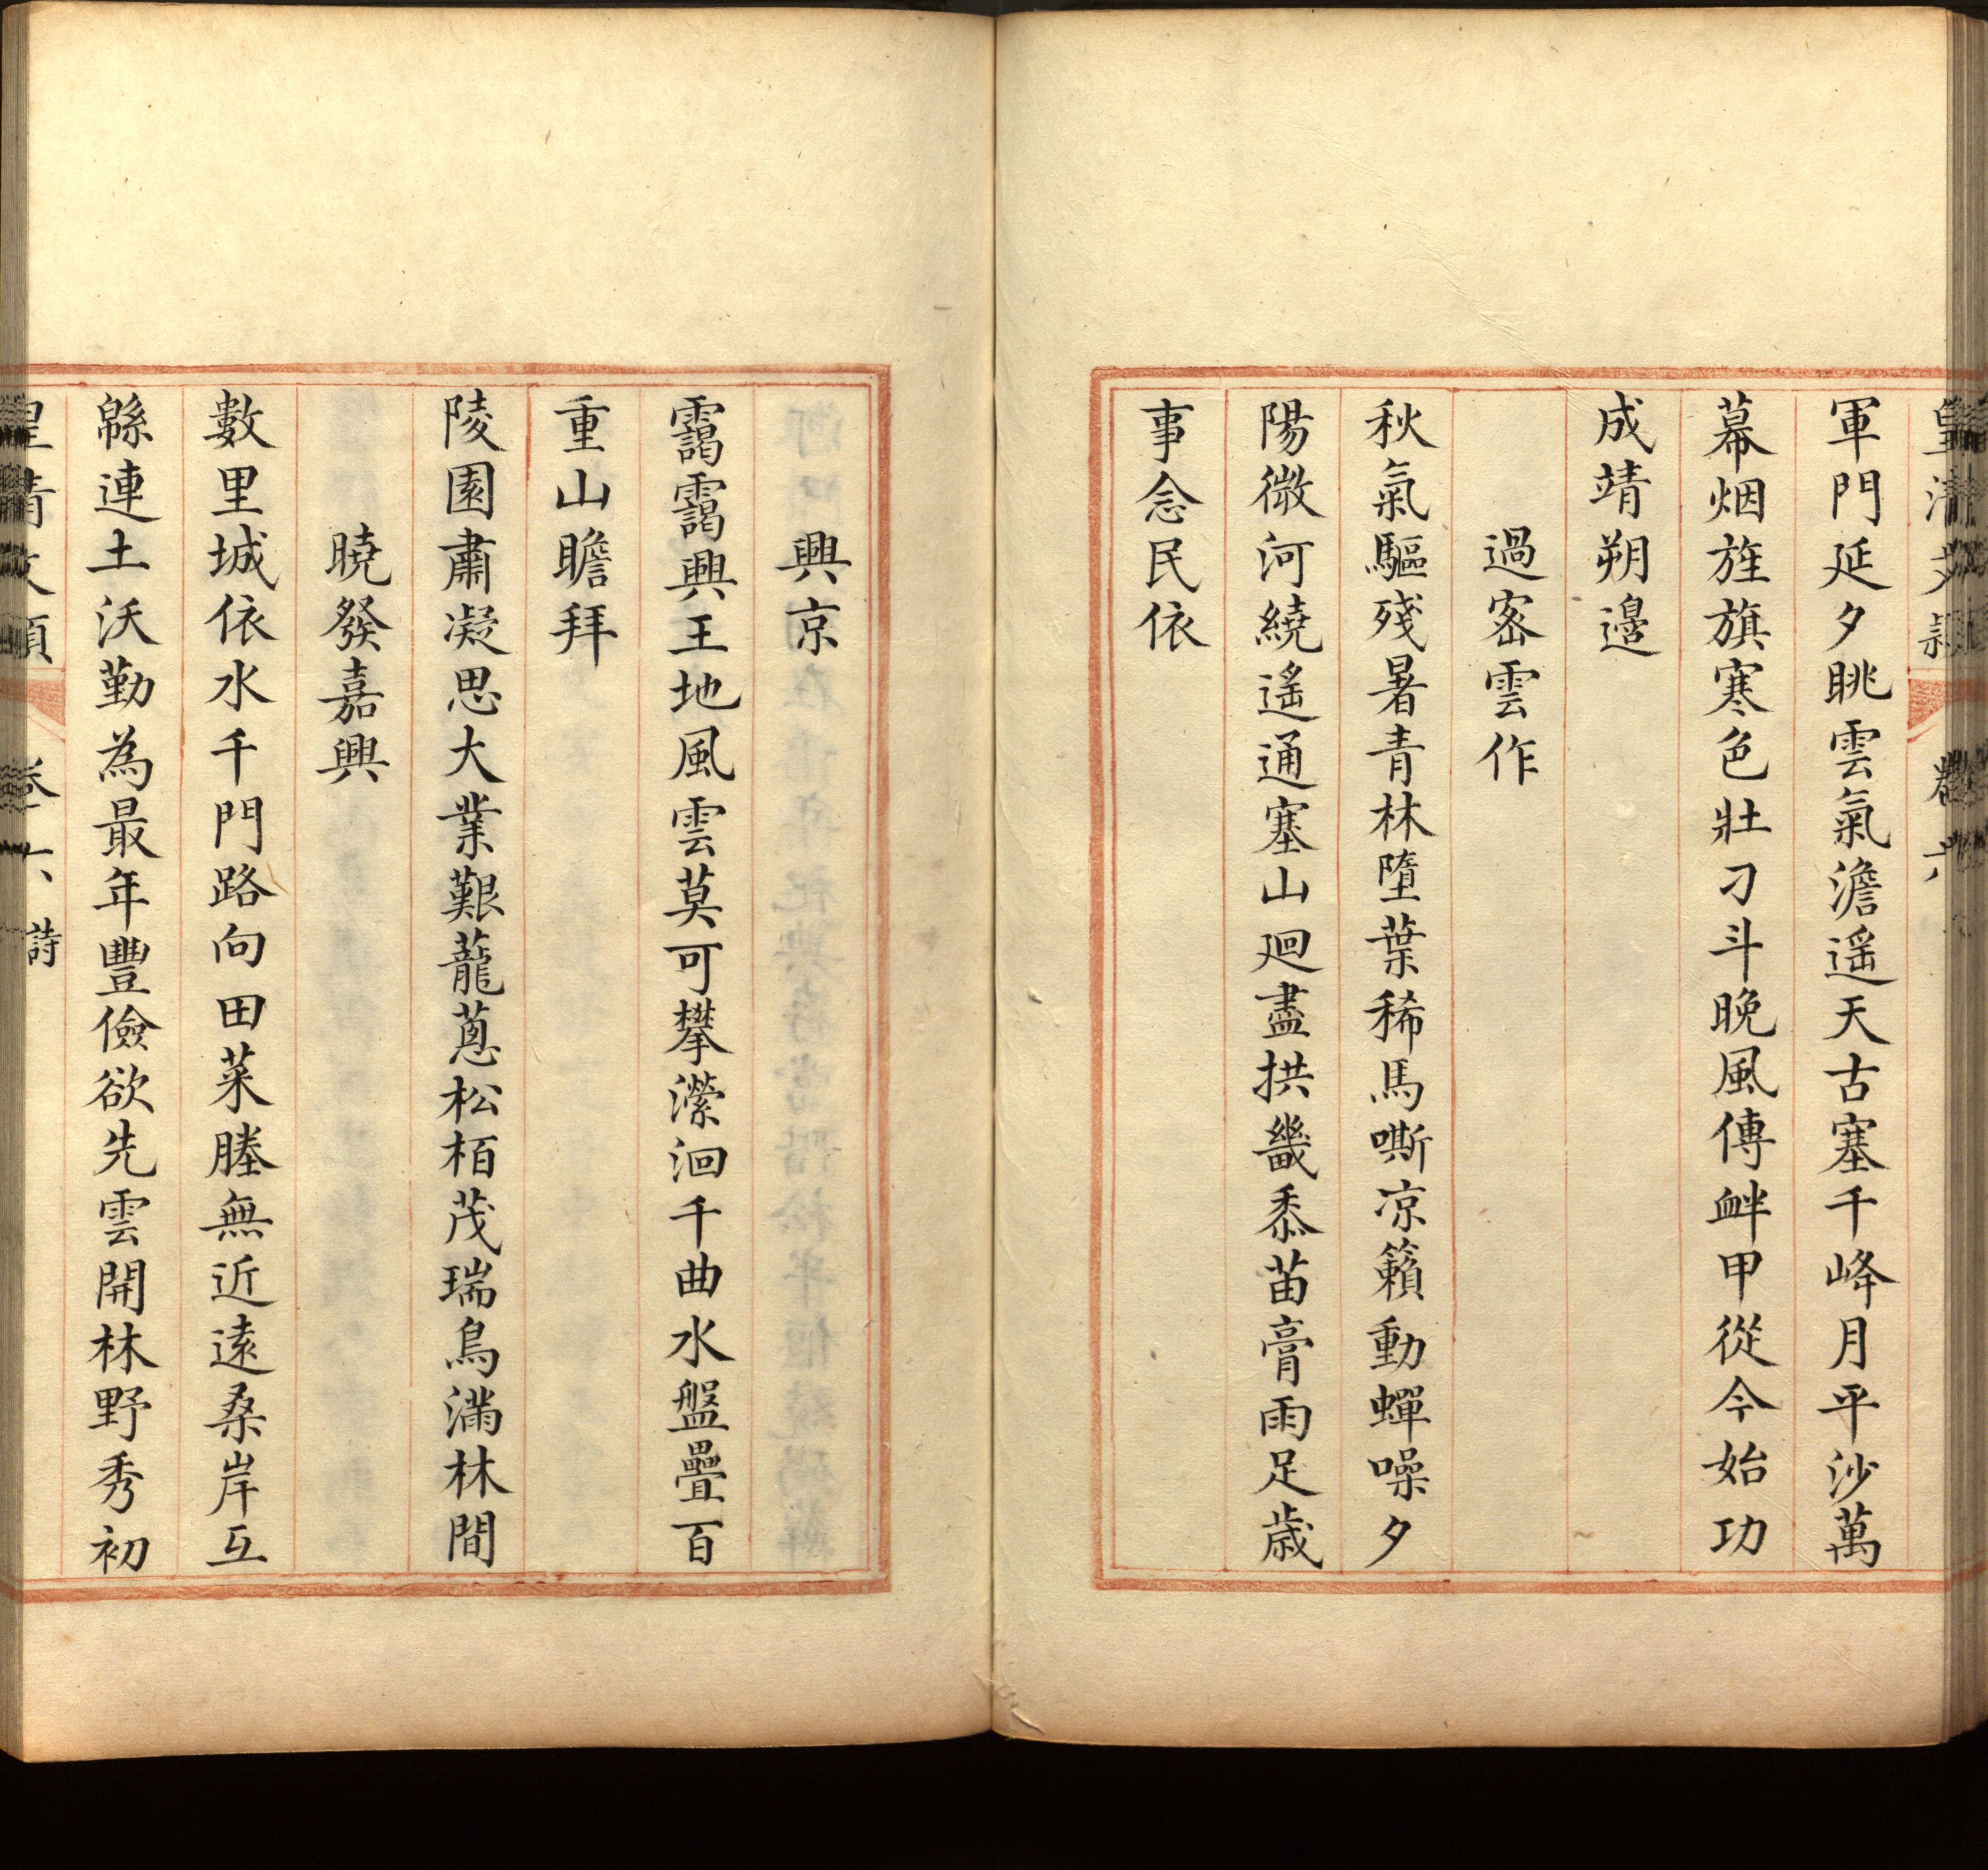 皇清文穎 卷六
軍門延夕眺雲氣澹遥天古塞千峰月平沙萬
幕烟旌旗寒色壯刁斗晚風傳衅甲從今始功
成靖朔邊
過密雲作
秋氣驅殘暑青林墮葉稀馬嘶凉籟動蟬噪夕
陽微河繞遥通塞山廻盡拱畿黍苗膏雨足歲
事念民依
興京
靄靄興王地風雲莫可攀瀠洄千曲水盤疊百
重山瞻拜
陵園肅凝思大業艱蘢蔥松栢茂瑞鳥滿林間
曉發嘉興
數里城依水千門路向田菜塍無近遠桑岸互
緜連土沃勤為最年豐儉欲先雲開林野秀初
皇清文穎 卷六 詩